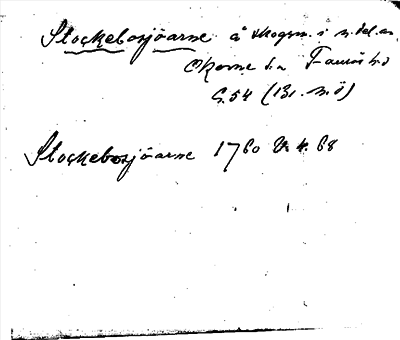 Stockebosjöarne å skogen i n. del. av
Okome sn Faurås hd
G.54 (Bl. n.ö)
Stockebosjöarne 1760 V. 4. 68